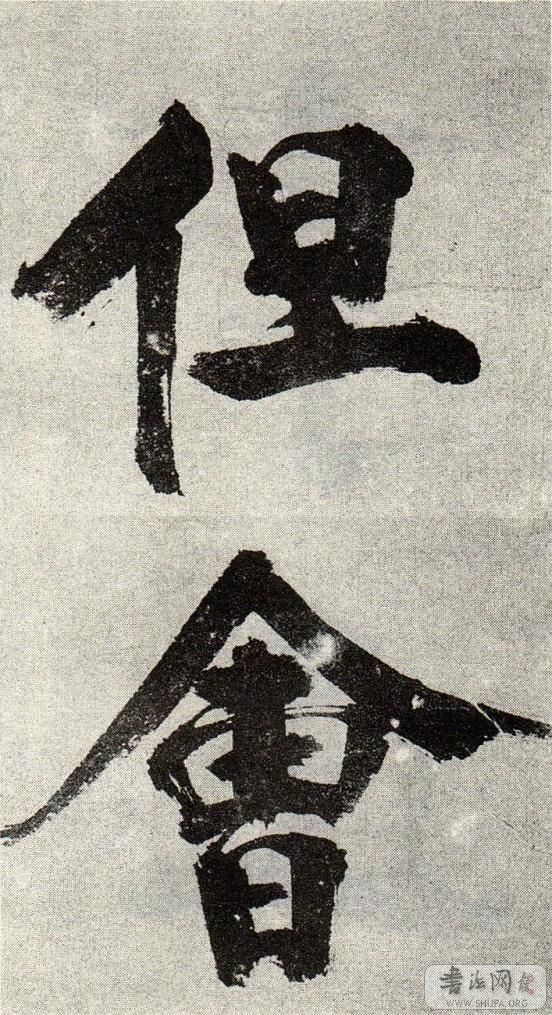 但
會
书法网
WWW.SHUFA.ORG